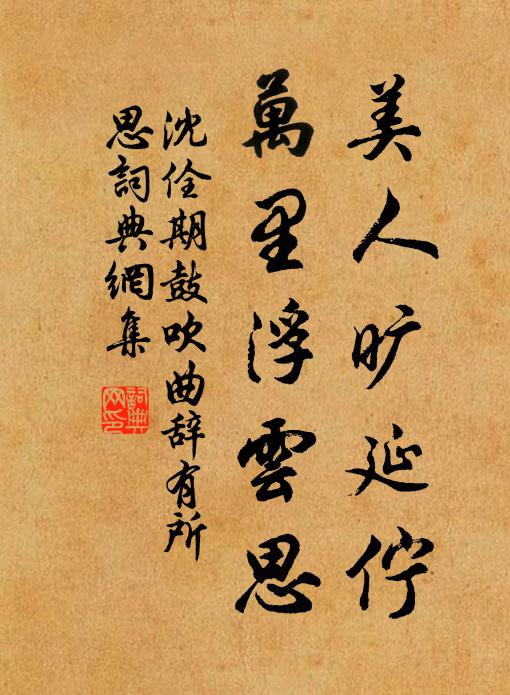 美人旷延佇
萬里浮雲思
沈佺期鼓吹曲辞有所
思詞典網集
詞典網印